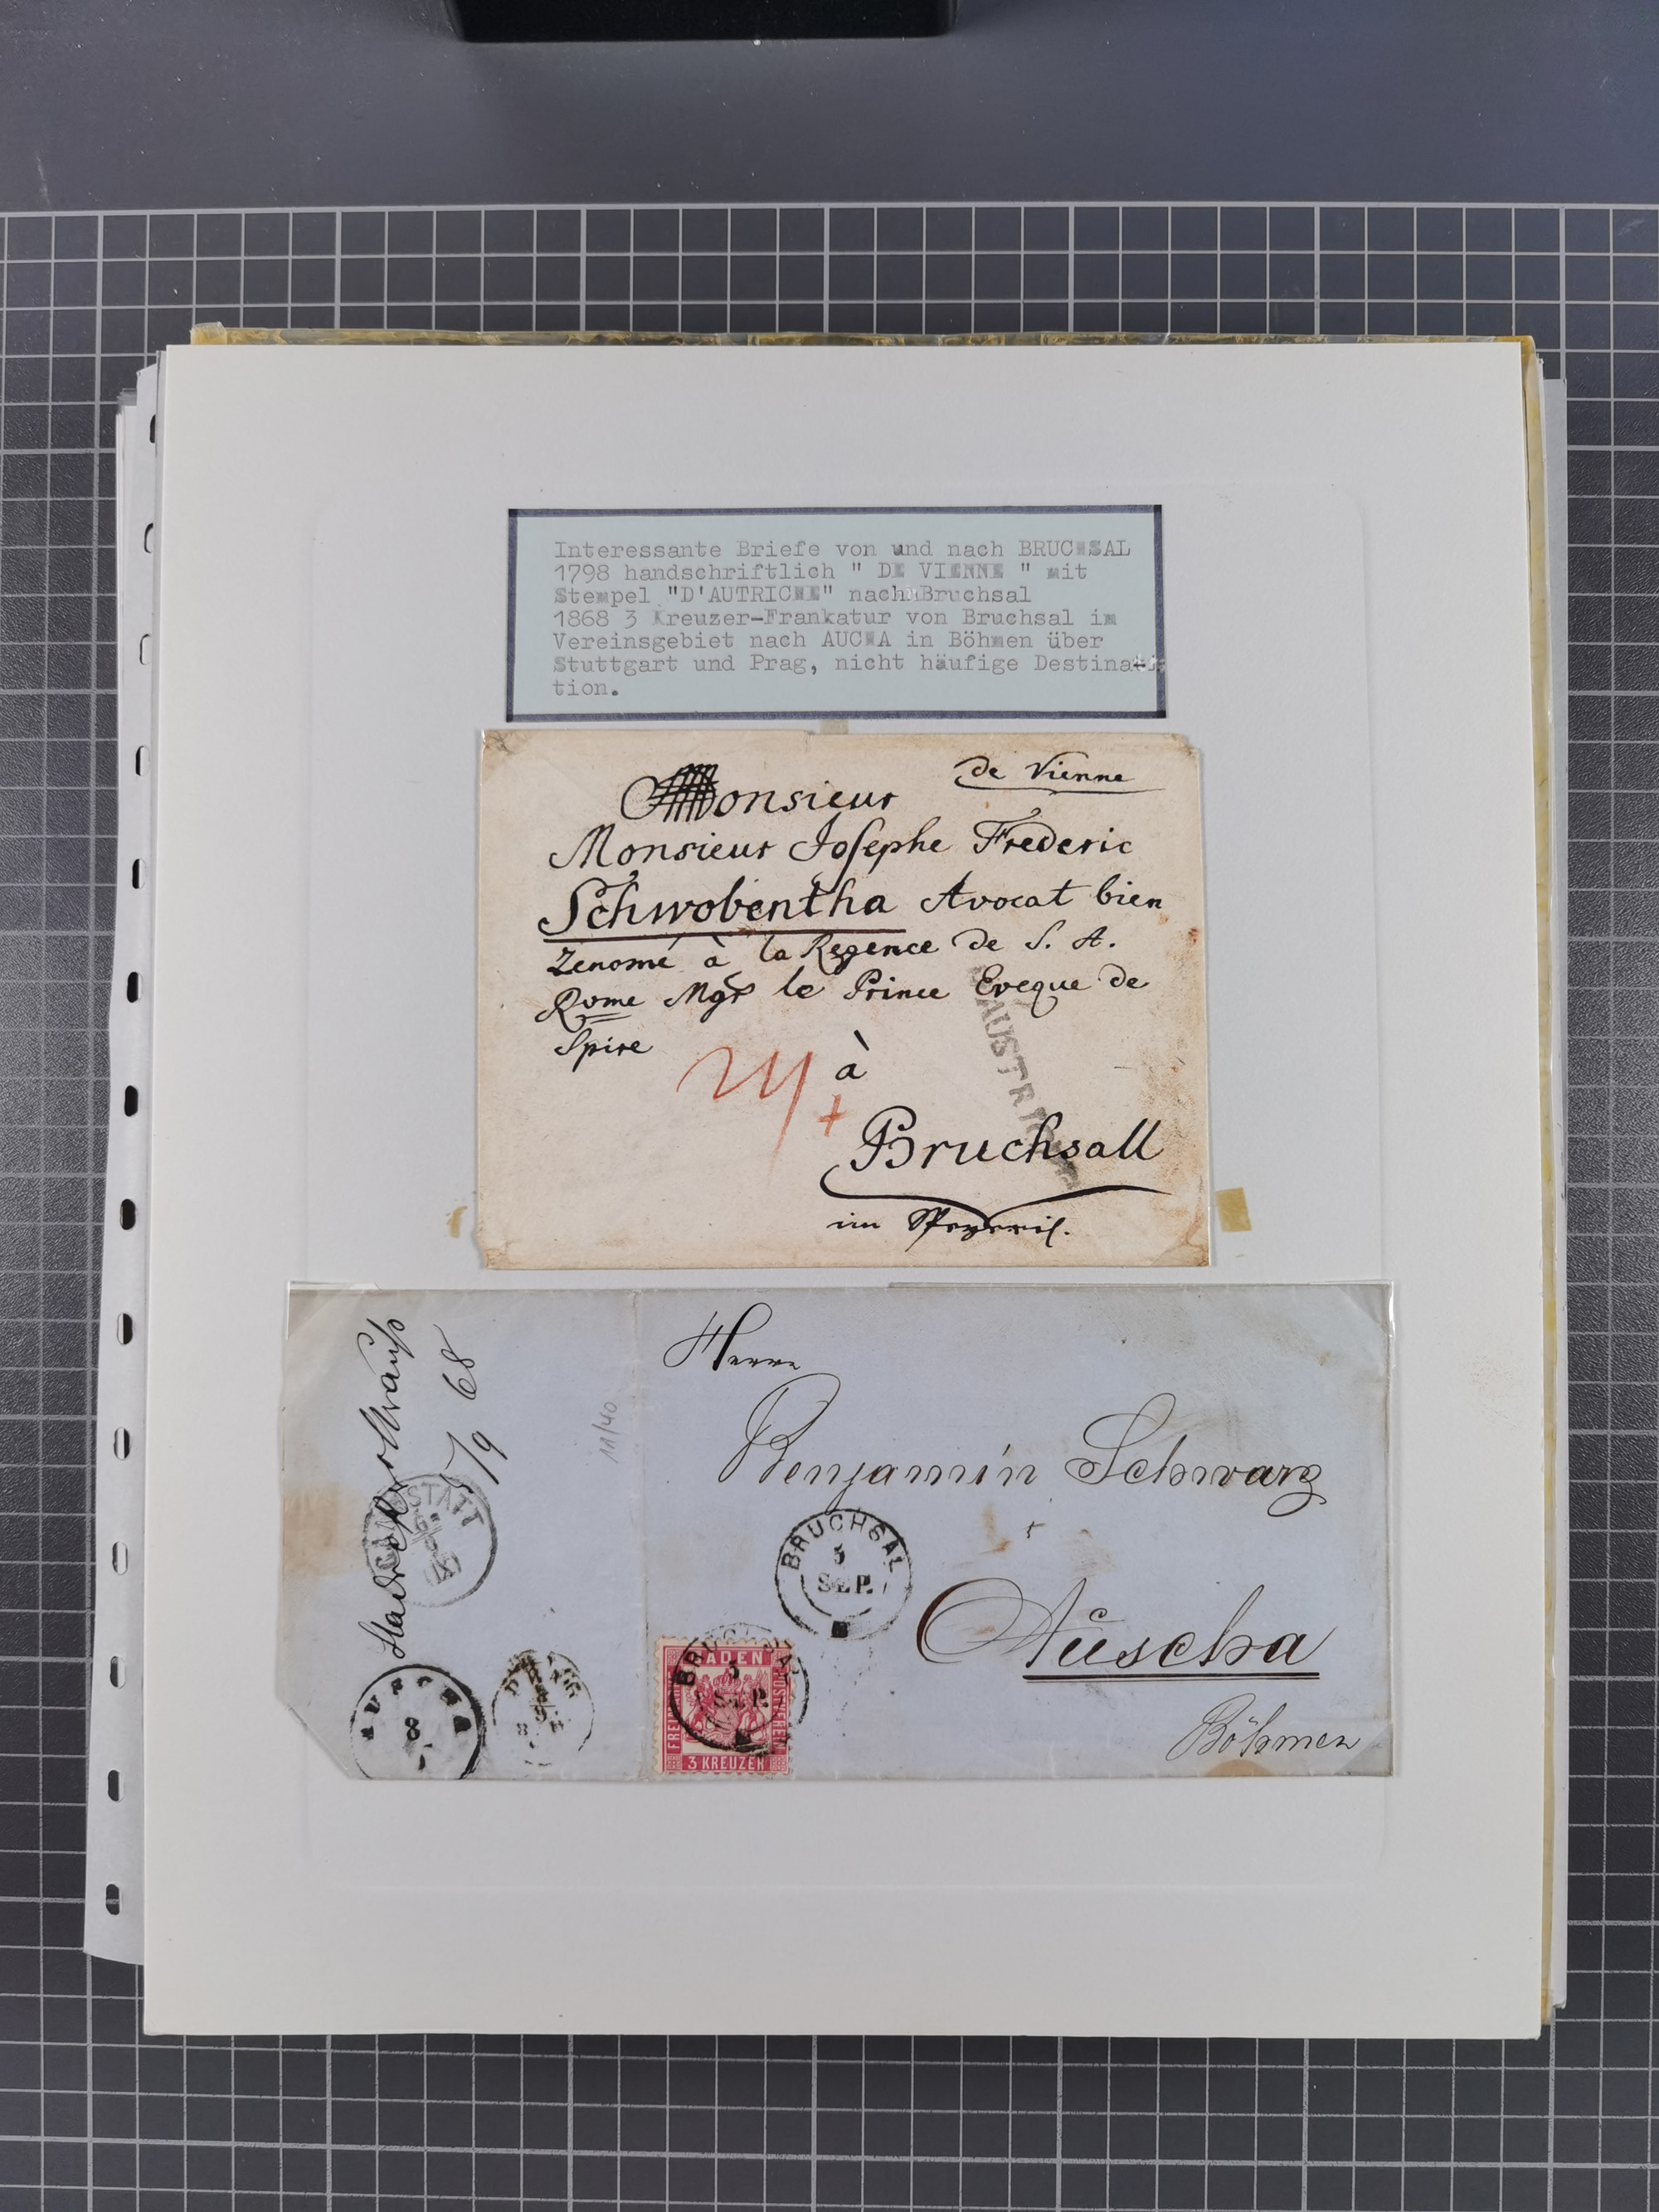 Interessante Briefe von und nach BRUCHSAL
1798 handschriftlich " DE VIENNE " mit
Stempel "D'AUTRICHE" nach Bruchsal
1868 3 Kreuzer-Frankatur von Bruchsal im
Vereinsgebiet nach AUCHA in Böhmen über
Stuttgart und Prag, nicht häufige Destinati
tion.
de Vienne
Monsieur
Monsieur Josephe Frederic
Schwobentha Avocat bien
renomé à la Regence de S. A.
Rvme Mgr le Prince Eveque de
Spire
à
AUSTRI
Bruchsall
im
Herrn
Benjamin Schwarz
Auscha
Böhmen
BRUCHSAL
5
SEP.
BRUCHSAL
5
SEP.
BADEN
FREIMARKE
3 KREUZER
5/9 68
11/40
CANNSTATT
AUSCHA
8